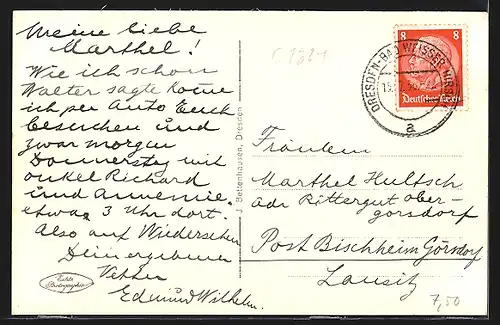 Meine liebe
Marthel!
Wie ich schon
Walter sagte kome
ich per Auto Euch
besuchen und
zwar morgen
Donnerstag mit
onkel Richard
und Annemie.
etwas 3 Uhr dort.
Also auf Wiedersehen
Dein ergebener
Vetter
Edmund Wilhelm.
Echte
Photographie
J. Bettenhausen, Dresden
8 8
Deutsches Reich
DRESDEN-BAD WEISSER HIRSCH
a
Fräulein
Marthel Hultsch
adr Rittergut ober-
gorsdorf
Post Bischheim Görsdorf
Lausitz
7,50